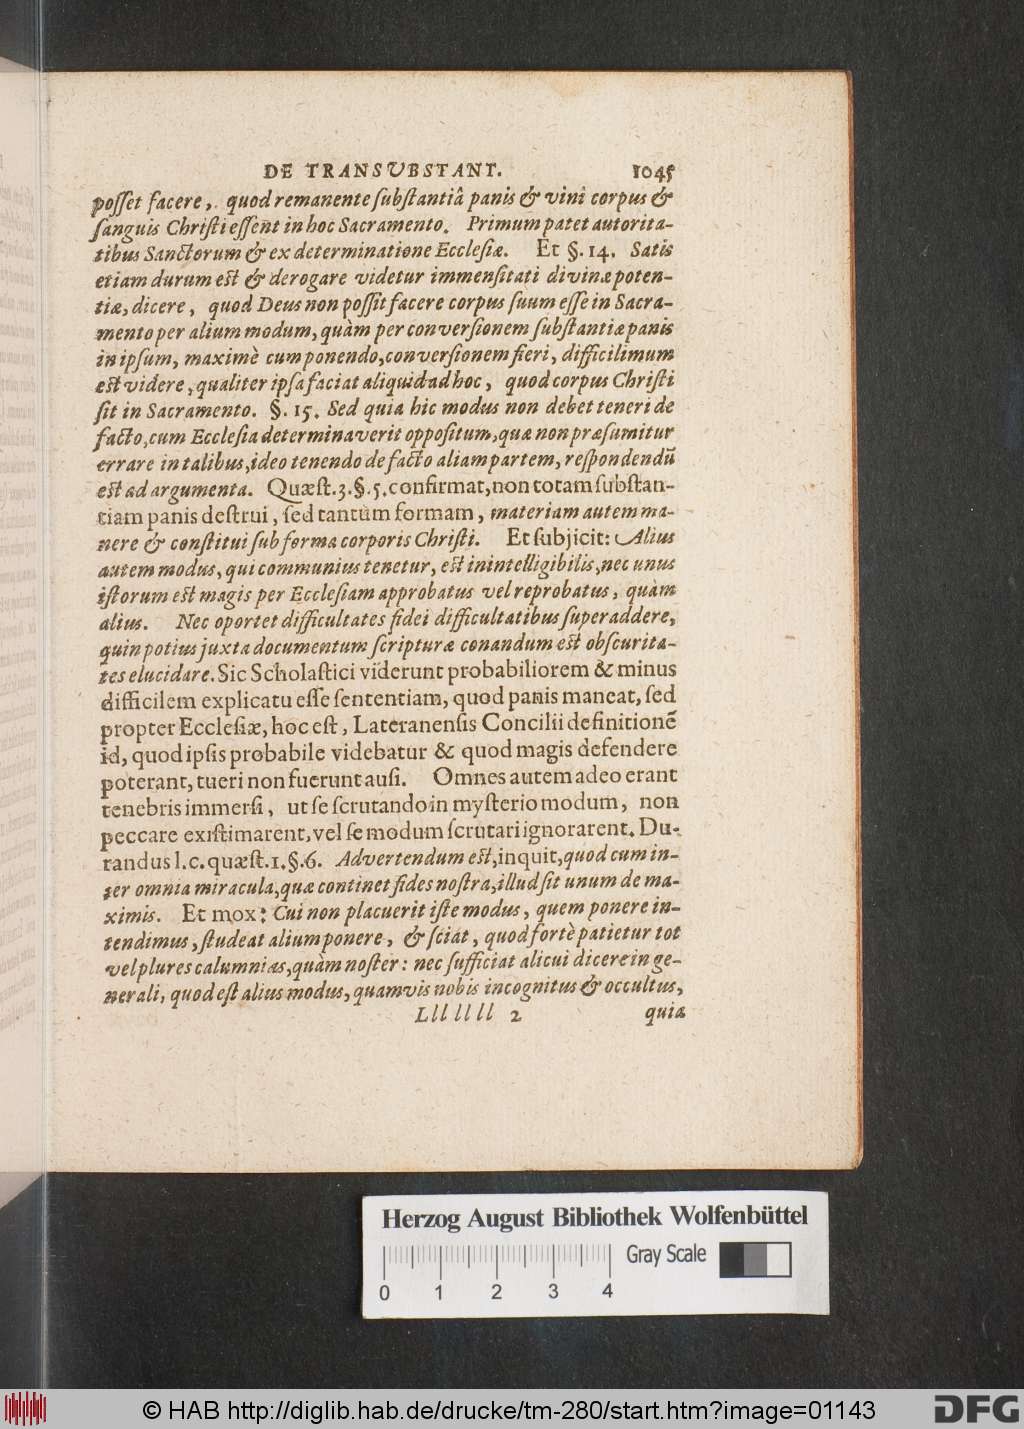 DE TRANSUBSTANT. 1045
posset facere, quod remanente substantiâ panis & vini corpus &
sanguis Christi essent in hoc Sacramento. Primum patet autorita-
tibus Sanctorum & ex determinatione Ecclesiæ. Et §. 14. Satis
etiam durum est & derogare videtur immensitati divinæ poten-
tiæ, dicere, quod Deus non possit facere corpus suum esse in Sacra-
mento per alium modum, quàm per conversionem substantiæ panis
in ipsum, maximè cum ponendo, conversionem fieri, difficilimum
est videre, qualiter ipsa faciat aliquid ad hoc, quod corpus Christi
sit in Sacramento. §. 15. Sed quia hic modus non debet teneri de
facto, cum Ecclesia determinaverit oppositum, quæ non præsumitur
errare in talibus, ideo tenendo de facto aliam partem, respondendū
est ad argumenta. Quæst. 3. §. 5. confirmat, non totam substan-
tiam panis destrui, sed tantùm formam, materiam autem ma-
nere & constitui sub forma corporis Christi. Et subjicit: Alius
autem modus, qui communius tenetur, est inintelligibilis, nec unus
istorum est magis per Ecclesiam approbatus vel reprobatus, quàm
alius. Nec oportet difficultates fidei difficultatibus superaddere,
quin potius juxta documentum scripturæ conandum est obscurita-
tes elucidare. Sic Scholastici viderunt probabiliorem & minus
difficilem explicatu esse sententiam, quod panis maneat, sed
propter Ecclesiæ, hoc est, Lateranensis Concilii definitionē
id, quod ipsis probabile videbatur & quod magis defendere
poterant, tueri non fuerunt ausi. Omnes autem adeo erant
tenebris immersi, ut se scrutando in mysterio modum, non
peccare existimarent, vel se modum scrutari ignorarent. Du-
randus l. c. quæst. 1. §. 6. Advertendum est, inquit, quod cum in-
ter omnia miracula, quæ continet fides nostra, illud sit unum de ma-
ximis. Et mox: Cui non placuerit iste modus, quem ponere in-
tendimus, studeat alium ponere, & sciat, quod fortè patietur tot
vel plures calumnias, quàm noster: nec sufficiat alicui dicere in ge-
nerali, quod est alius modus, quamvis nobis incognitus & occultus,
Lll lll ll 2 quia
Herzog August Bibliothek Wolfenbüttel
Gray Scale
0 1 2 3 4
© HAB http://diglib.hab.de/drucke/tm-280/start.htm?image=01143
DFG